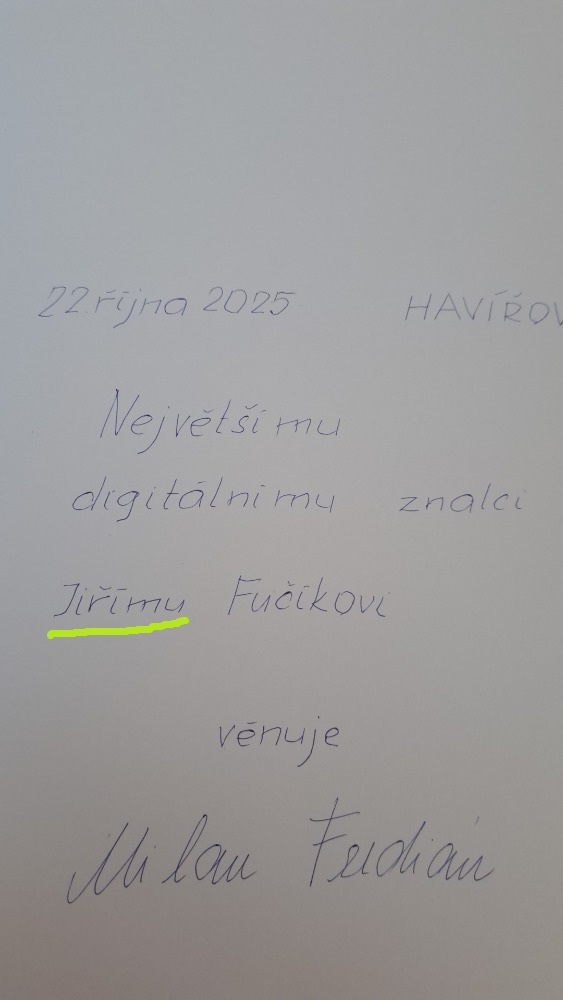 22 října 2025 HAVÍŘOV
Největšímu
digitálnímu znalci
Jiřímu Fučíkovi
věnuje
Milan Ferdián